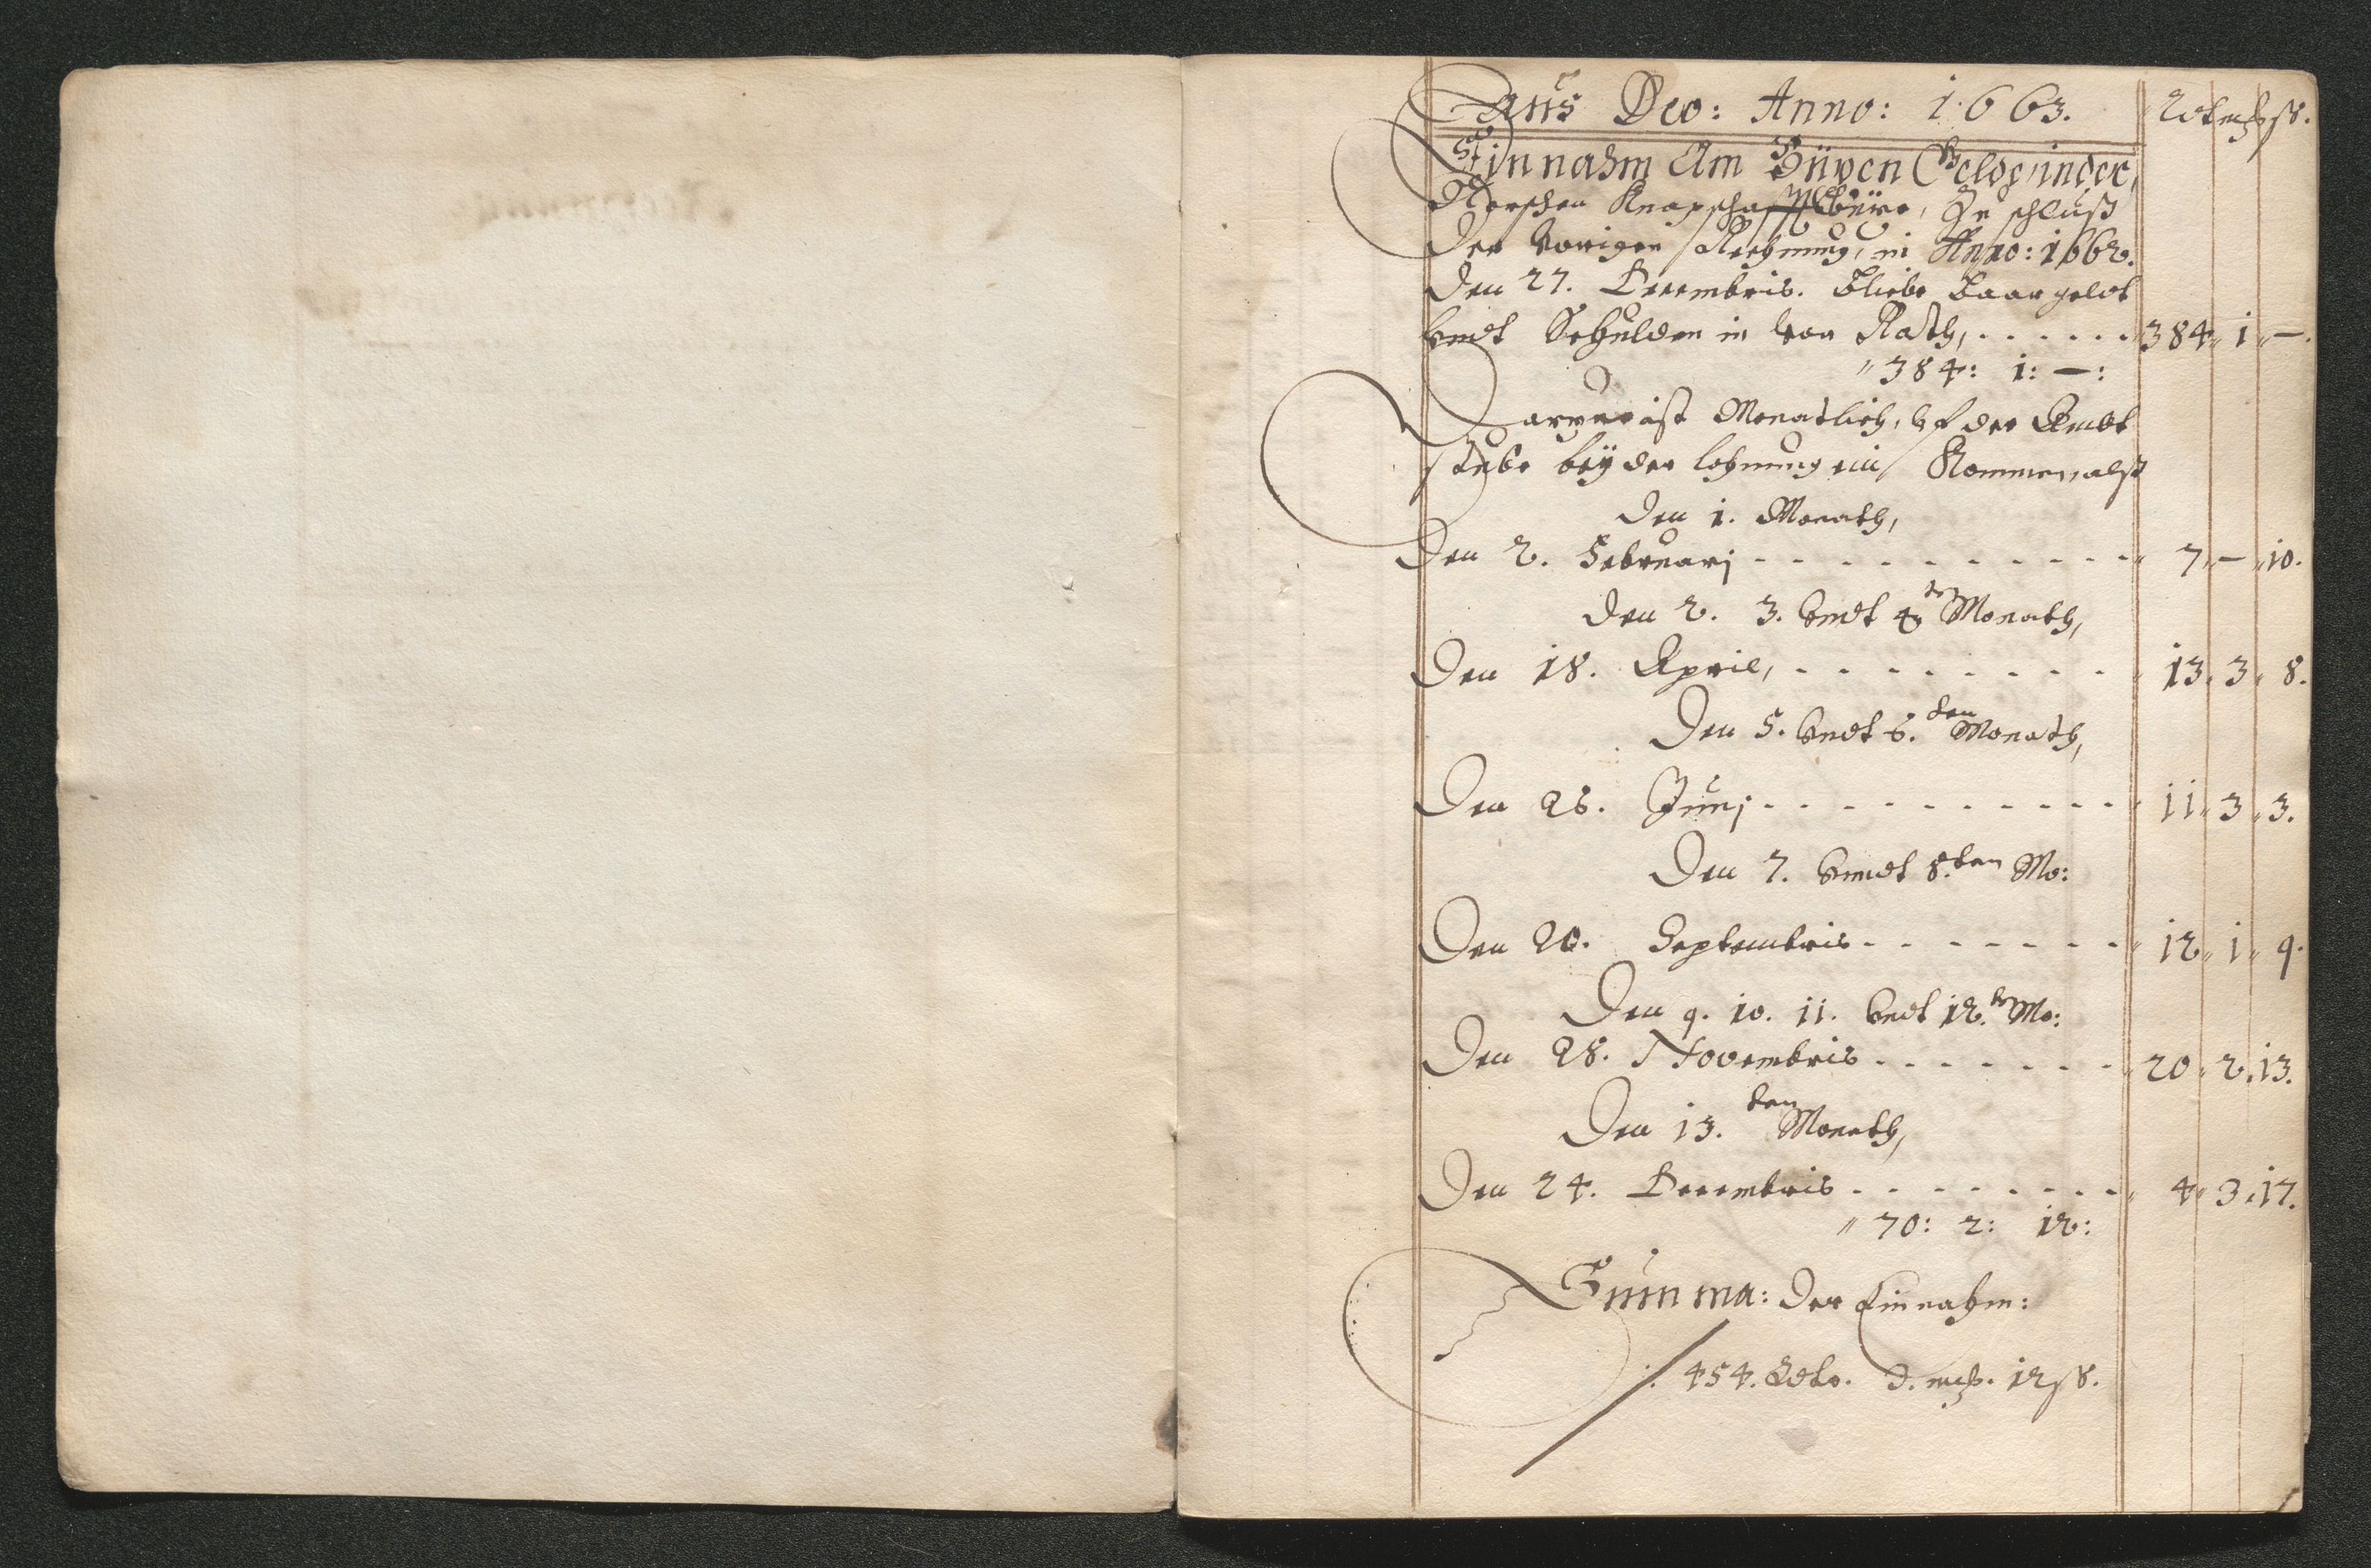 Laus Deo: Anno: 1663.
Einnahm Am Büxen Geldt, in der
Knapschafft
der Vorigen Rechnung, in Anno: 1662.
den 27. Decembris. bliebe baar geldt
Vndt Schulden in Vor Rath, . . . . . . 384 " 1 " —.
" 384: 1: —:
ist Monatlich, vf der Ambt
stube beÿ der lohnung ein Kommen, alß
den 1. Monath,
den 2. Februarj - - - - - - - - - - - " 7 " — " 10.
den 2. 3. Vndt 4 ten Monath,
Den 18. April, - - - - - - - - - " 13 " 3 " 8.
Den 5. Vndt 6. ten Monath,
Den 26. Junj - - - - - - - - - - - " 11 " 3 " 3.
Den 7. Vnndt 8. ten Mo:
Den 20. Septembris - - - - - - - " 12 " 1 " 9.
Den 9. 10. 11. Vndt 12. te Mo:
Den 28. Novembris - - - - - - - " 20 " 2 " 13.
Den 13. ten Monath,
Den 24. Decembris - - - - - - - - " 4 " 3 " 17.
" 70: 2: 12:
Summa: der Einnahm:
454. 3. 12